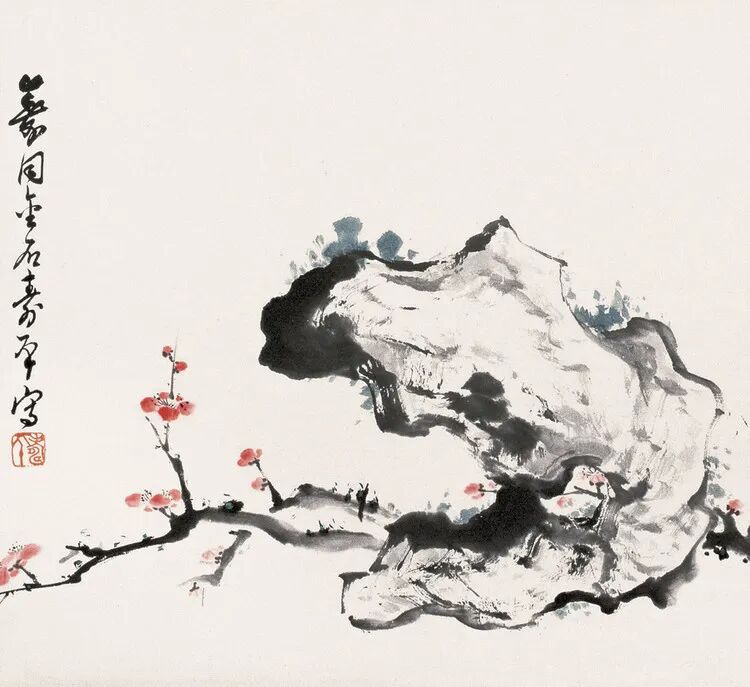 同金石壽平寫